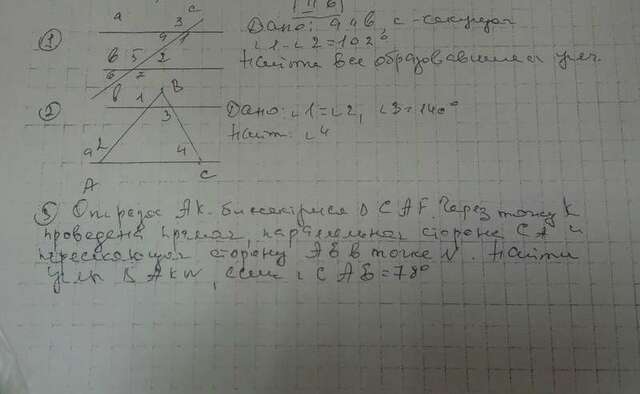 [II б]
① a 3 c Дано: a ∥ b, c - секущая
4 1 ∠1 - ∠2 = 102°
b 5 2 Найти все образовавшиеся угл.
6 7
② b 1 B Дано: ∠1 = ∠2, ∠3 = 140°
3 Найт: ∠4
a 2 4
A C
③ Отрезок AK - биссектриса Δ CAF. Через точку K
проведена прямая, параллельная стороне CA и
пересекающая сторону АБ в точке N. Найти
углы Δ AKN, если ∠ CАБ = 78°